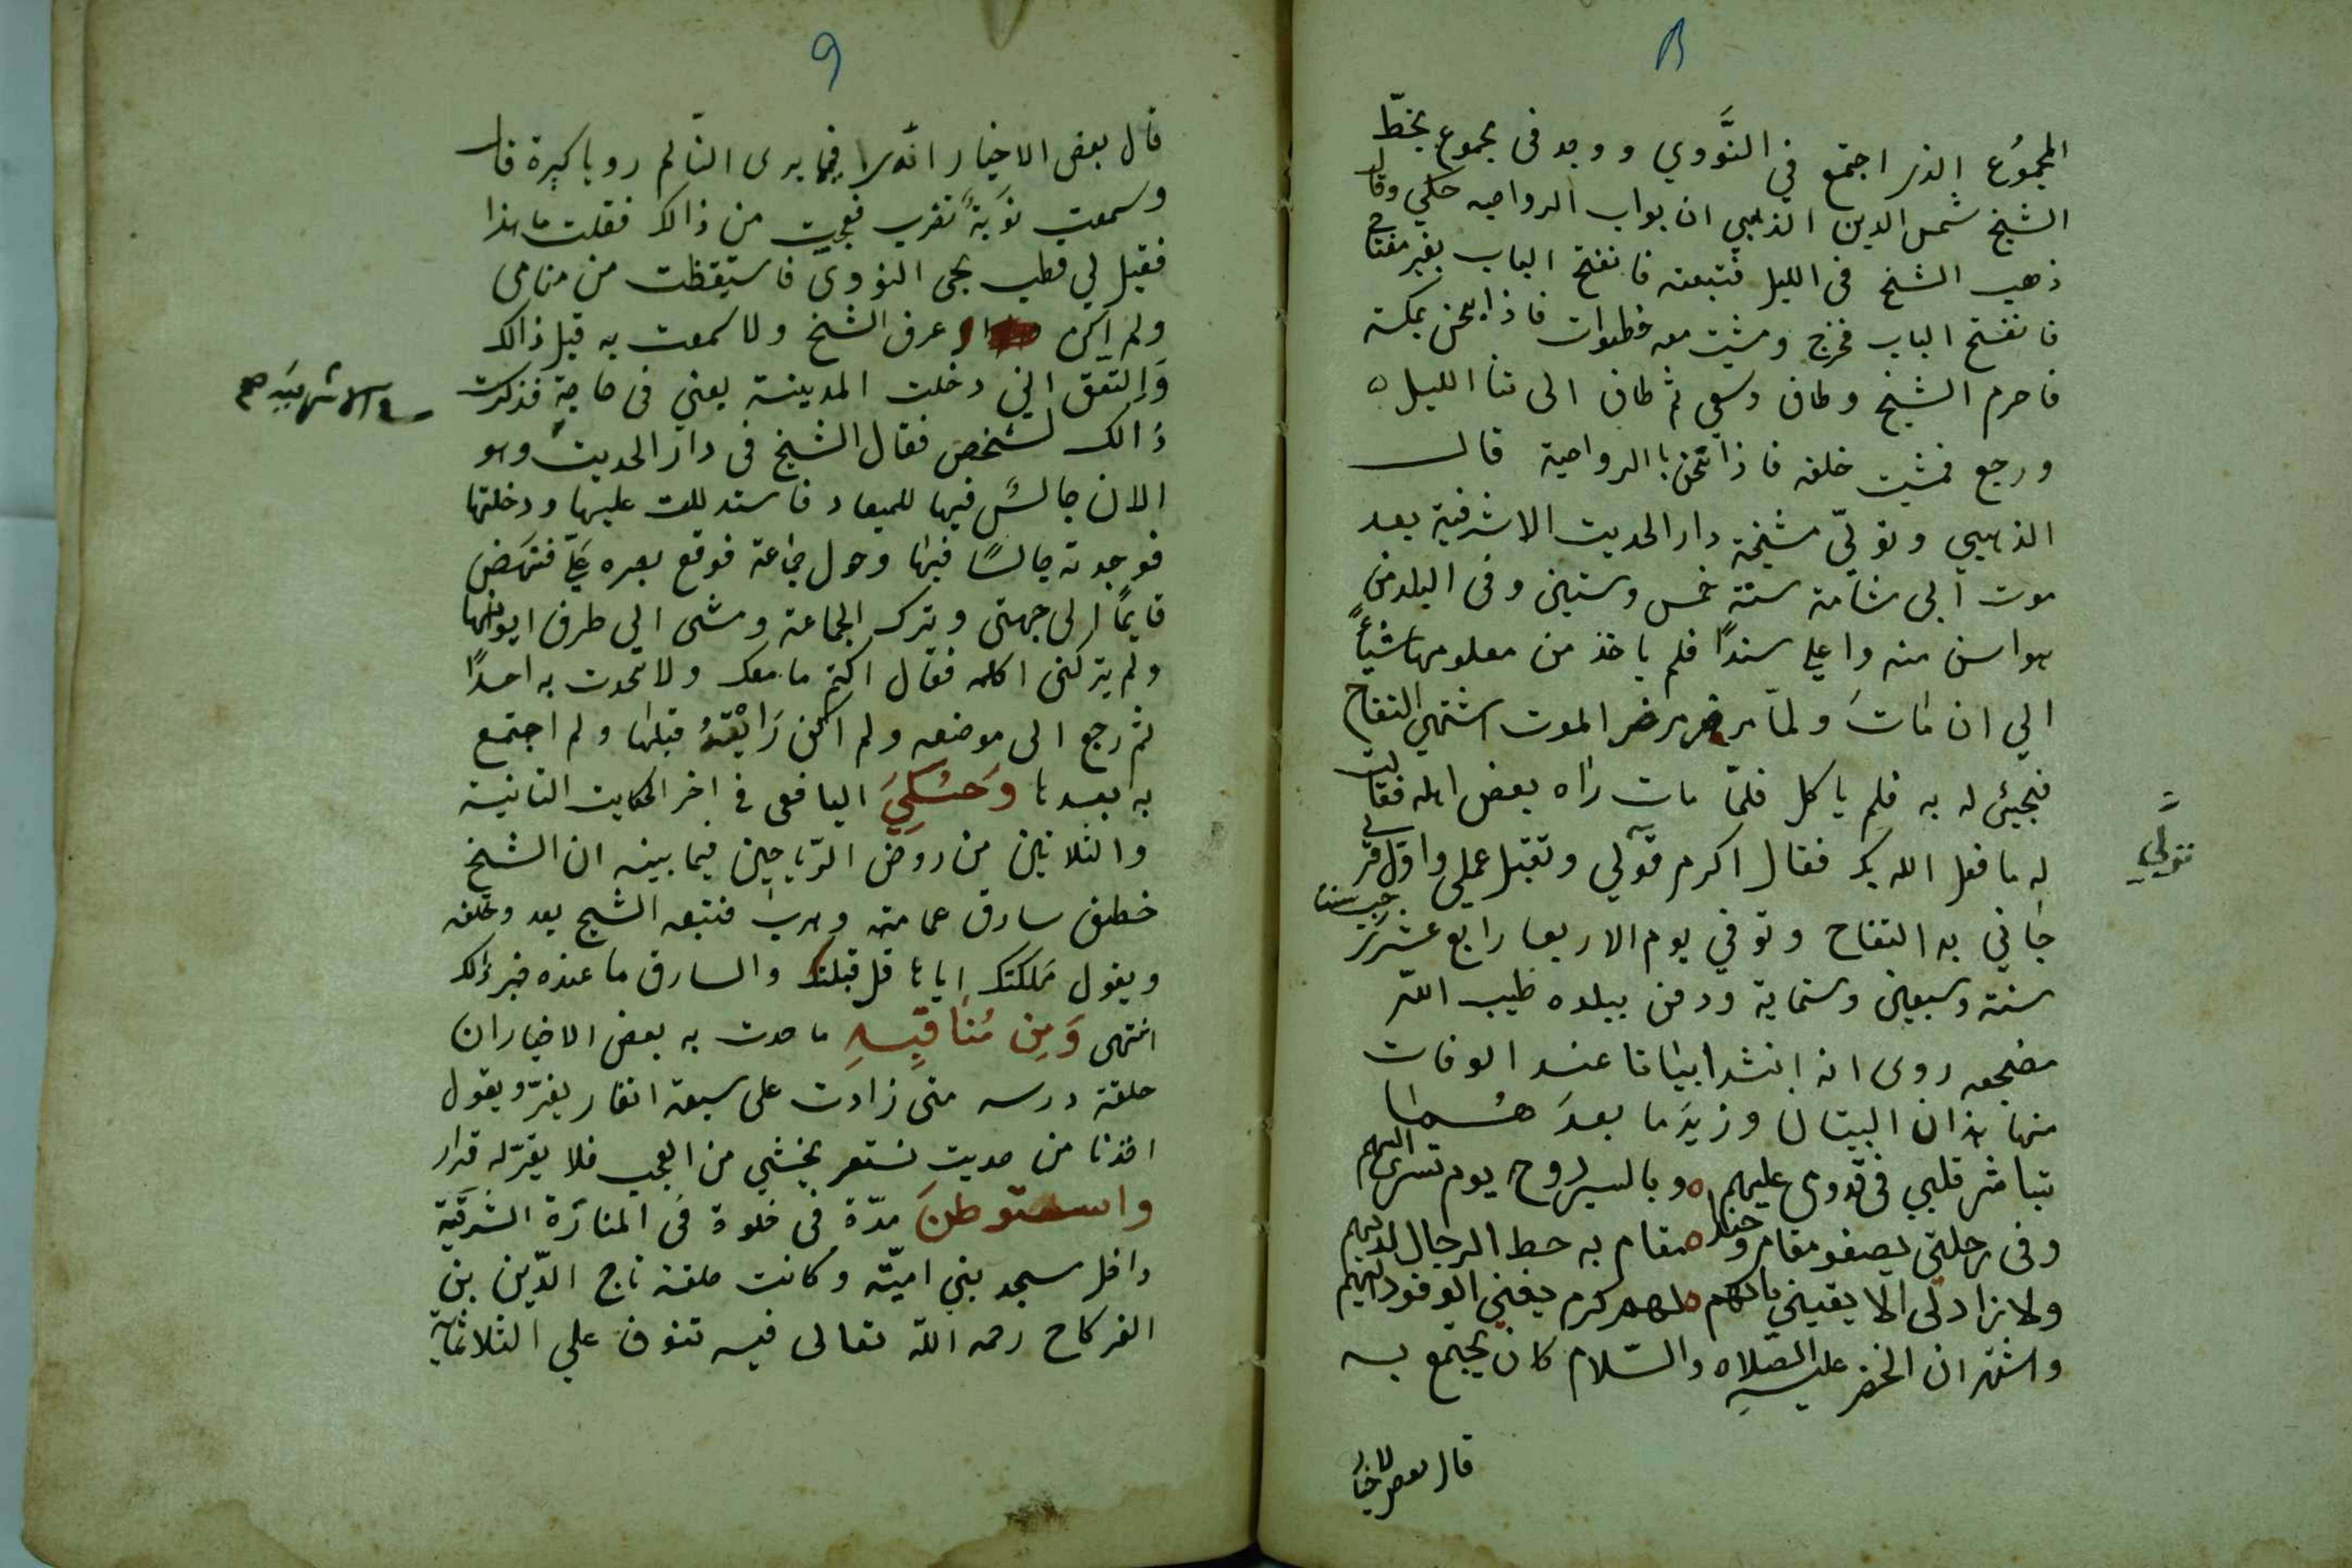 ٨
المجموع الذي اجتمع في النَّووي ووجد في مجموع بخطّ
الشيخ شمس الدين الذهبي ان بواب الرواحيه حكي وقال
ذهب الشيخ في الليل فتبعته فانفتح الباب بغير مفتاح
فانفتح الباب فخرج ومشيت معه خطوات فاذا نحن بمكة
فاحرم الشيخ وطاف وسعي ثم طاف الى اثنا الليل ه
ورجع فمشيت خلفه فاذا نحن باالرواحية قال
الذهبي وتولّي مشيخة دار الحديث الاشرفية بعد
موت ابي شامة سنة خمس وستين وفي البلد من
هو اسن منه واعلي سندًا فلم ياخذ من معلومها شيأً
الي ان مات ولمّا مرض مرض الموت اشتهي التفاح
فجيئ له به فلم ياكل فلمّا مات رآه بعض اهله فقالت
له ما فعل الله بك فقال اكرم قولي وتقبل عملي واول قر لي
تولّي
جاني به التفاح وتوفي يوم الاربعا رابع عشر رجب سنة
ستة وسبعين وستماية ودفن ببلده طيب اللّه
مضجعه روى انه انشد ابياتا عند الوفات
منها هذان البيتان وزيد ما بعد هما
تباشر قلبي في قدومي عليهم ه وبالسير روحي يوم تسري اليهم
وفي رحلتي يصفو مقامي وحبذا ه مقام به حط الرجال لديهم
ولا زاد لي الا يقيني بانهم ه لهم كرم يغني الوفود اليهم
واشتهر ان الخضر عليه الصّلاه والسّلام كان يجتمع به
قال بعض الاخيار
٩
قال بعض الاخيار انه را فيما يرى النّائم رويا كبيرة قال
وسمعت نوبةً تضرب فعجبت من ذالك فقلت ما هذا
فقيل لي قطب يحيى النووي فاستيقظت من منامي
ولم اكن اعرف الشيخ ولا سمعت به قبل ذالك
واتّفق اني دخلت المدينة يعني في حاجةٍ فذكرت
ذالك لشخص فقال الشيخ في دار الحديث وهو
الان جالسٌ فيها للميعاد فاستدللت عليها ودخلتها
فوجدته جالسًا فيها وحول جماعة فوقع بصره عليّ فنهض
قايمًا الى جهتي وترك الجماعة ومشى الي طرف ايوانها
ولم يتركني اكلمه فقال اكتم ما معك ولا تحدث به احدًا
ثم رجع الى موضعه ولم اكن رَايْتهُ قبلها ولم اجتمع
به بعدها وَحَكِيَ اليافعي في اخر الحكايت الثانية
والثلاثين من روض الرّياحين فيما بينه ان الشيخ
خطف سارق عمامته وهرب فتبعه الشيخ يعد وخلفه
ويقول مَلكتك اياها قل قبلتك والسارق ما عنده خبر ذلك
انتهى وَمِن مُنَاقِبِهِ ما حدث به بعض الاخيار ان
حلقة درسه متى زادت على سبعة انفار يفرّ ويقول
اخذنا من حديث نستعر يخشي من العجب فلا يقرّ له قرار
واستوطنَ مدّة في خلوة في المنارة الشرقيّة
داخل مسجد بني اميّة وكانت حلقة تاج الدّين بن
الفركاح رحمه اللّه تعالى فيه تنوف علي الثلاثماية